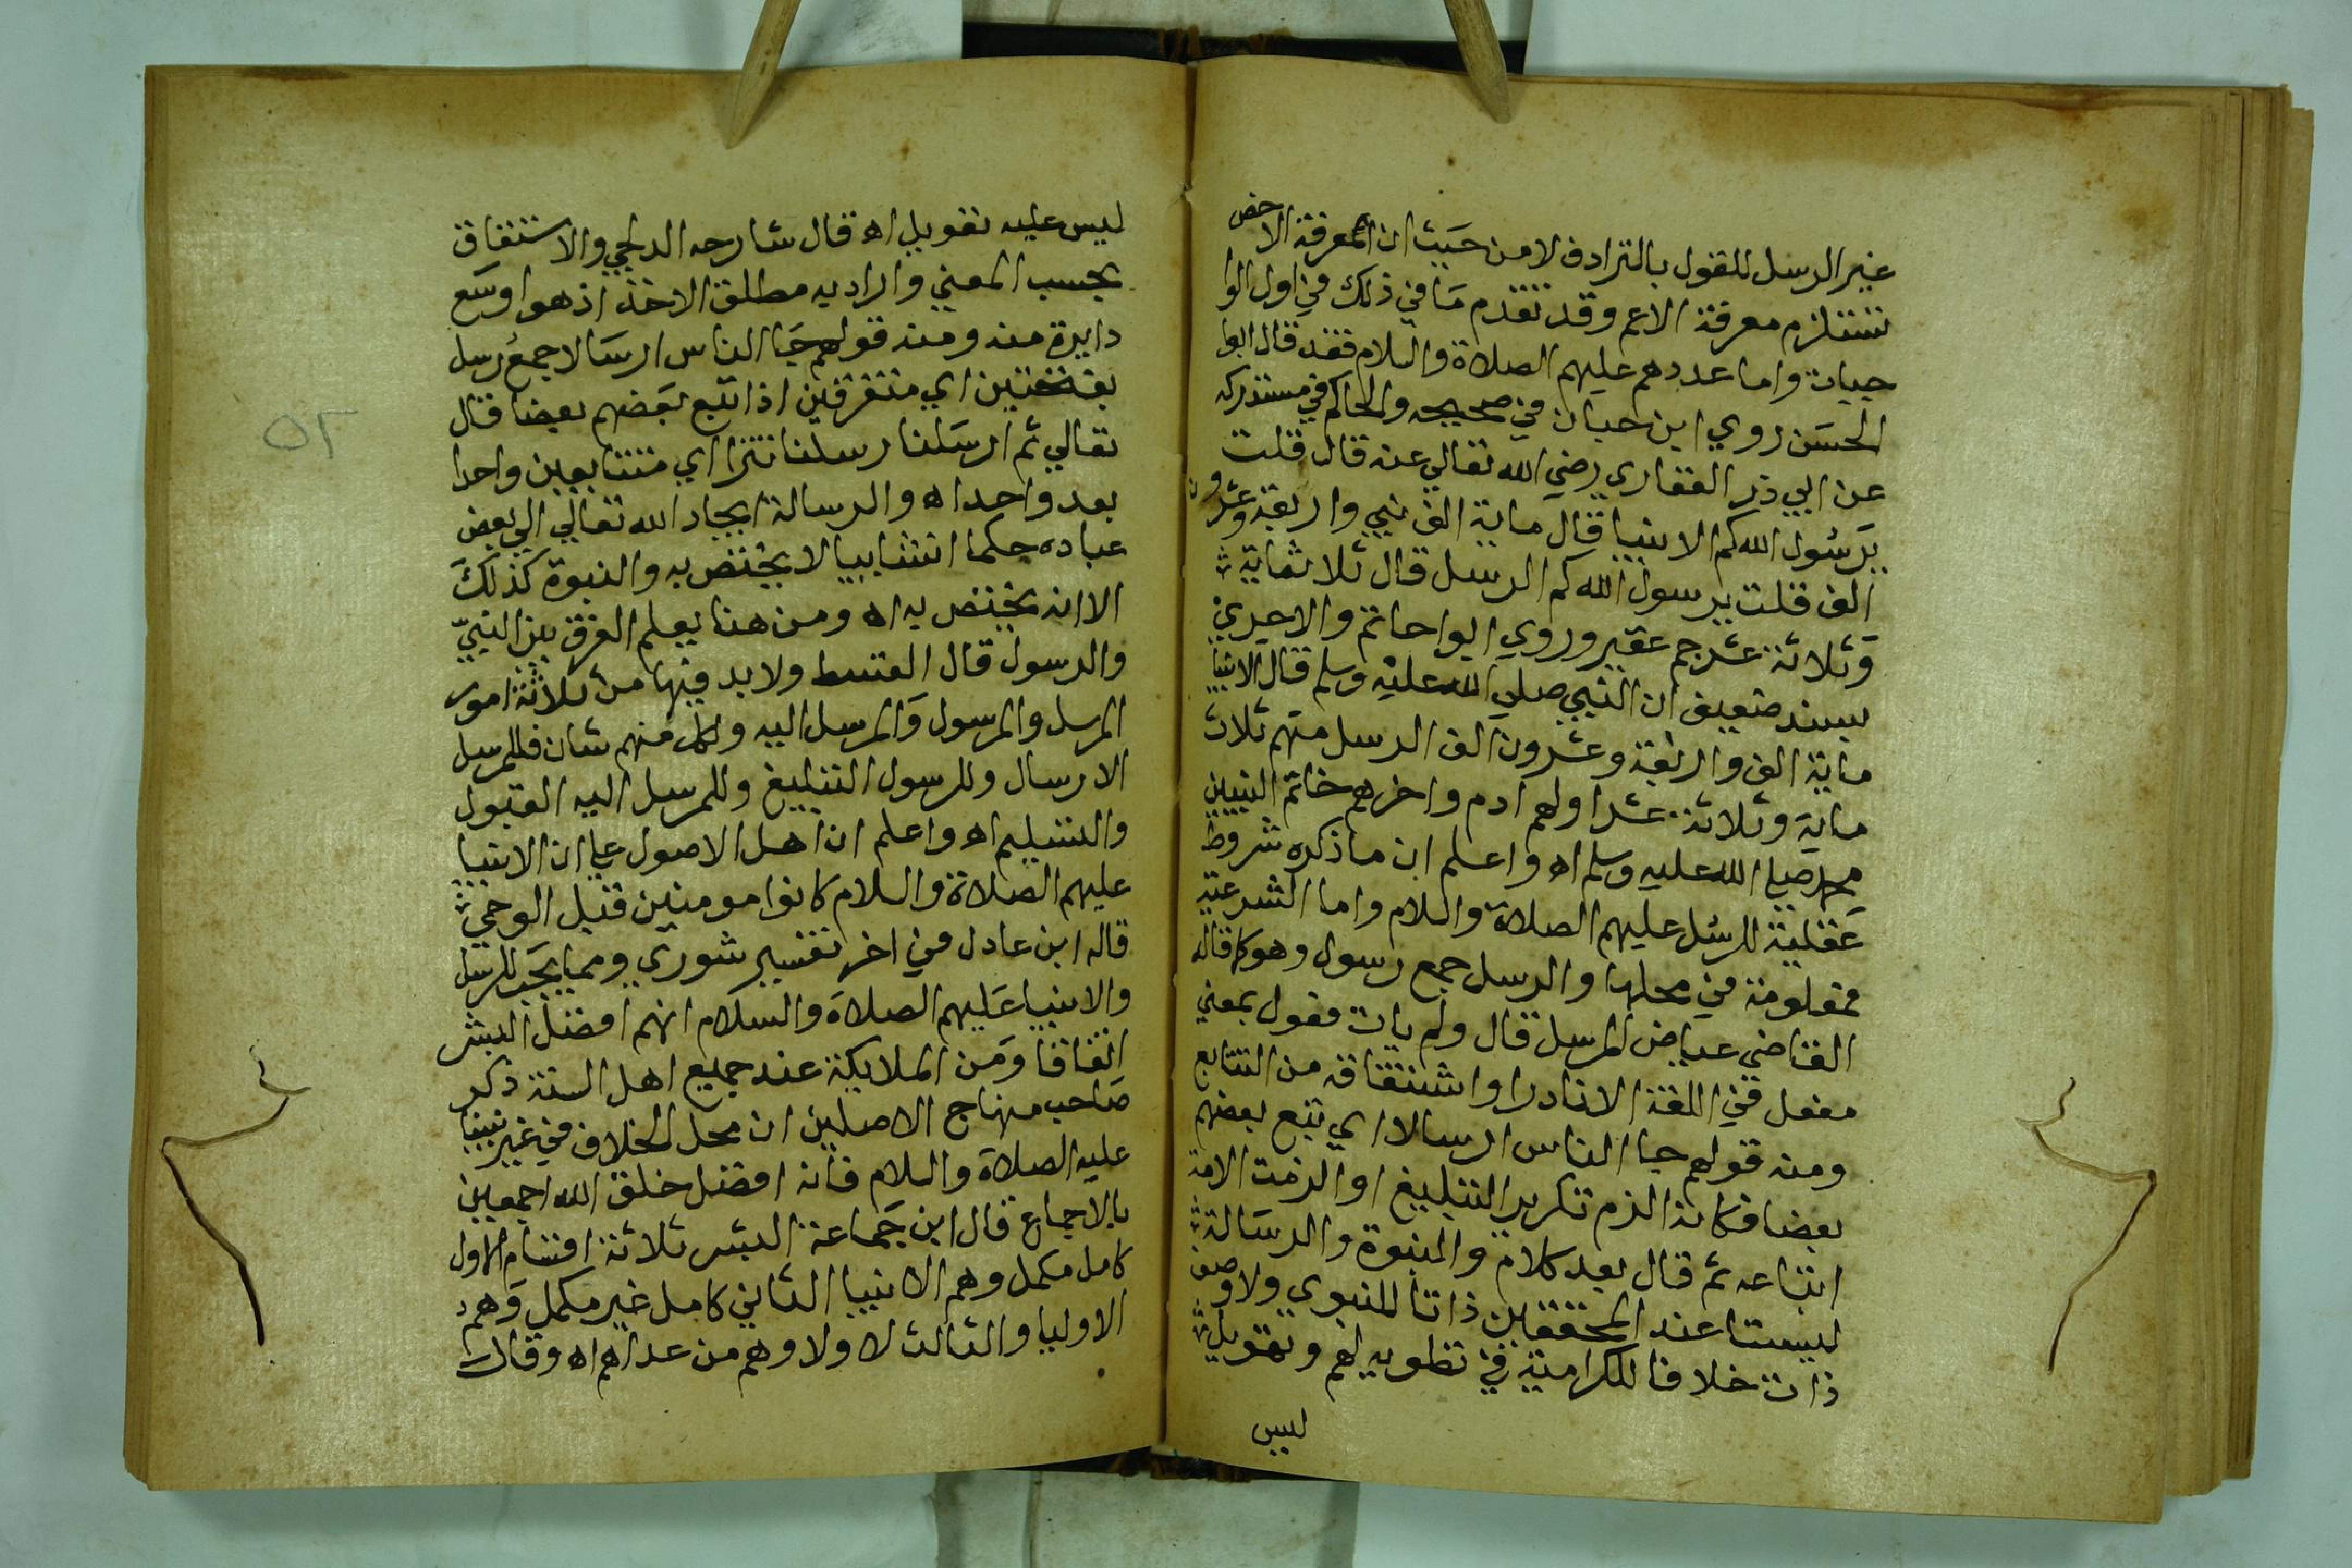 غير الرسل للقول بالترادف لا من حيث ان المعرفة الاخص
تستلزم معرفة الاعم وقد تقدم ما في ذلك في اول الوا
جبات واما عددهم عليهم الصلاة والسلام فقد قال ابوا
الحسن روي ابن حبان في صحيحه والحاكم في مستدركه
عن ابي ذر الغفاري رضي الله تعالي عنه قال قلت
يرسول الله كم الانبيا قال ماية الف نبي واربعة وعشرون
الف قلت يرسول الله كم الرسل قال ثلاثماية
وثلاثة عشر جم عفير وروي ابوا حاتم والاجري
بسند ضعيف ان النبي صلي الله عليه وسلم قال الانبيا
ماية الف واربعة وعشرون الف الرسل منهم ثلاث
ماية وثلاثة عشر اولهم ادم واخرهم خاتم النبيين
محمد صلي الله عليه وسلم اه واعلم ان ما ذكره شروط
عقلية للرسل عليهم الصلاة والسلام واما الشرعية
فمعلومة في محلها والرسل جمع رسول وهو كما قاله
القاضي عياض المرسل قال ولم يات فعول بمعني
مفعل في اللغة الا نادرا واشتقاقه من التتابع
ومنه قولهم جا الناس ارسالا اي تبع بعضهم
بعضا فكانه الزم تكرير التبليغ او الزمت الامة
اتباعه ثم قال بعد كلام والنبوة والرسالة
ليستا عند المحققين ذاتا للنبوي ولا وصف
ذات خلافا للكرامية في تطويل لهم وتهويل
ليس
ليس عليه تعويل اه قال شارحه الدلجي والاشتقاق
بحسب المعني والمراد به مطلق الاخذ اذ هو اوسع
دايرة منه ومنه قولهم جا الناس ارسالا جمع رسل
بفتحتين اي متفرقين اذا اتبع بعضهم بعضا قال
تعالي ثم ارسلنا رسلنا تترا اي متتابعين واحدا
بعد واحد اه والرسالة ايجاد الله تعالي الي بعض
عباده حكما انشاييا لا يختص به والنبوة كذلك
الا انه يختص به اه ومن هنا يعلم الفرق بين النبي
والرسول قال القسط ولا بد فيها من ثلاثة امور
المرسل والمرسول والمرسل اليه ولكل منهم شان فللمرسل
الارسال وللرسول التبليغ وللمرسل اليه القبول
والتسليم اه واعلم ان اهل الاصول علي ان الانبيا
عليهم الصلاة والسلام كانوا مومنين قبل الوحي
قاله ابن عادل في اخر تفسير شوري ومما يجب للرسل
والانبيا عليهم الصلاة والسلام انهم افضل البشر
اتفاقا ومن الملايكة عند جميع اهل السنة ذكر
صاحب منهاج الاصلين ان محل الخلاف في غير نبينا
عليه الصلاة والسلام فانه افضل خلق الله اجمعين
بالاجماع قال ابن جماعة البشر ثلاثة اقسام الاول
كامل مكمل وهم الانبيا الثاني كامل غير مكمل وهم
الاوليا والثالث لا ولا وهم من عداهم اه وقال
٥٢